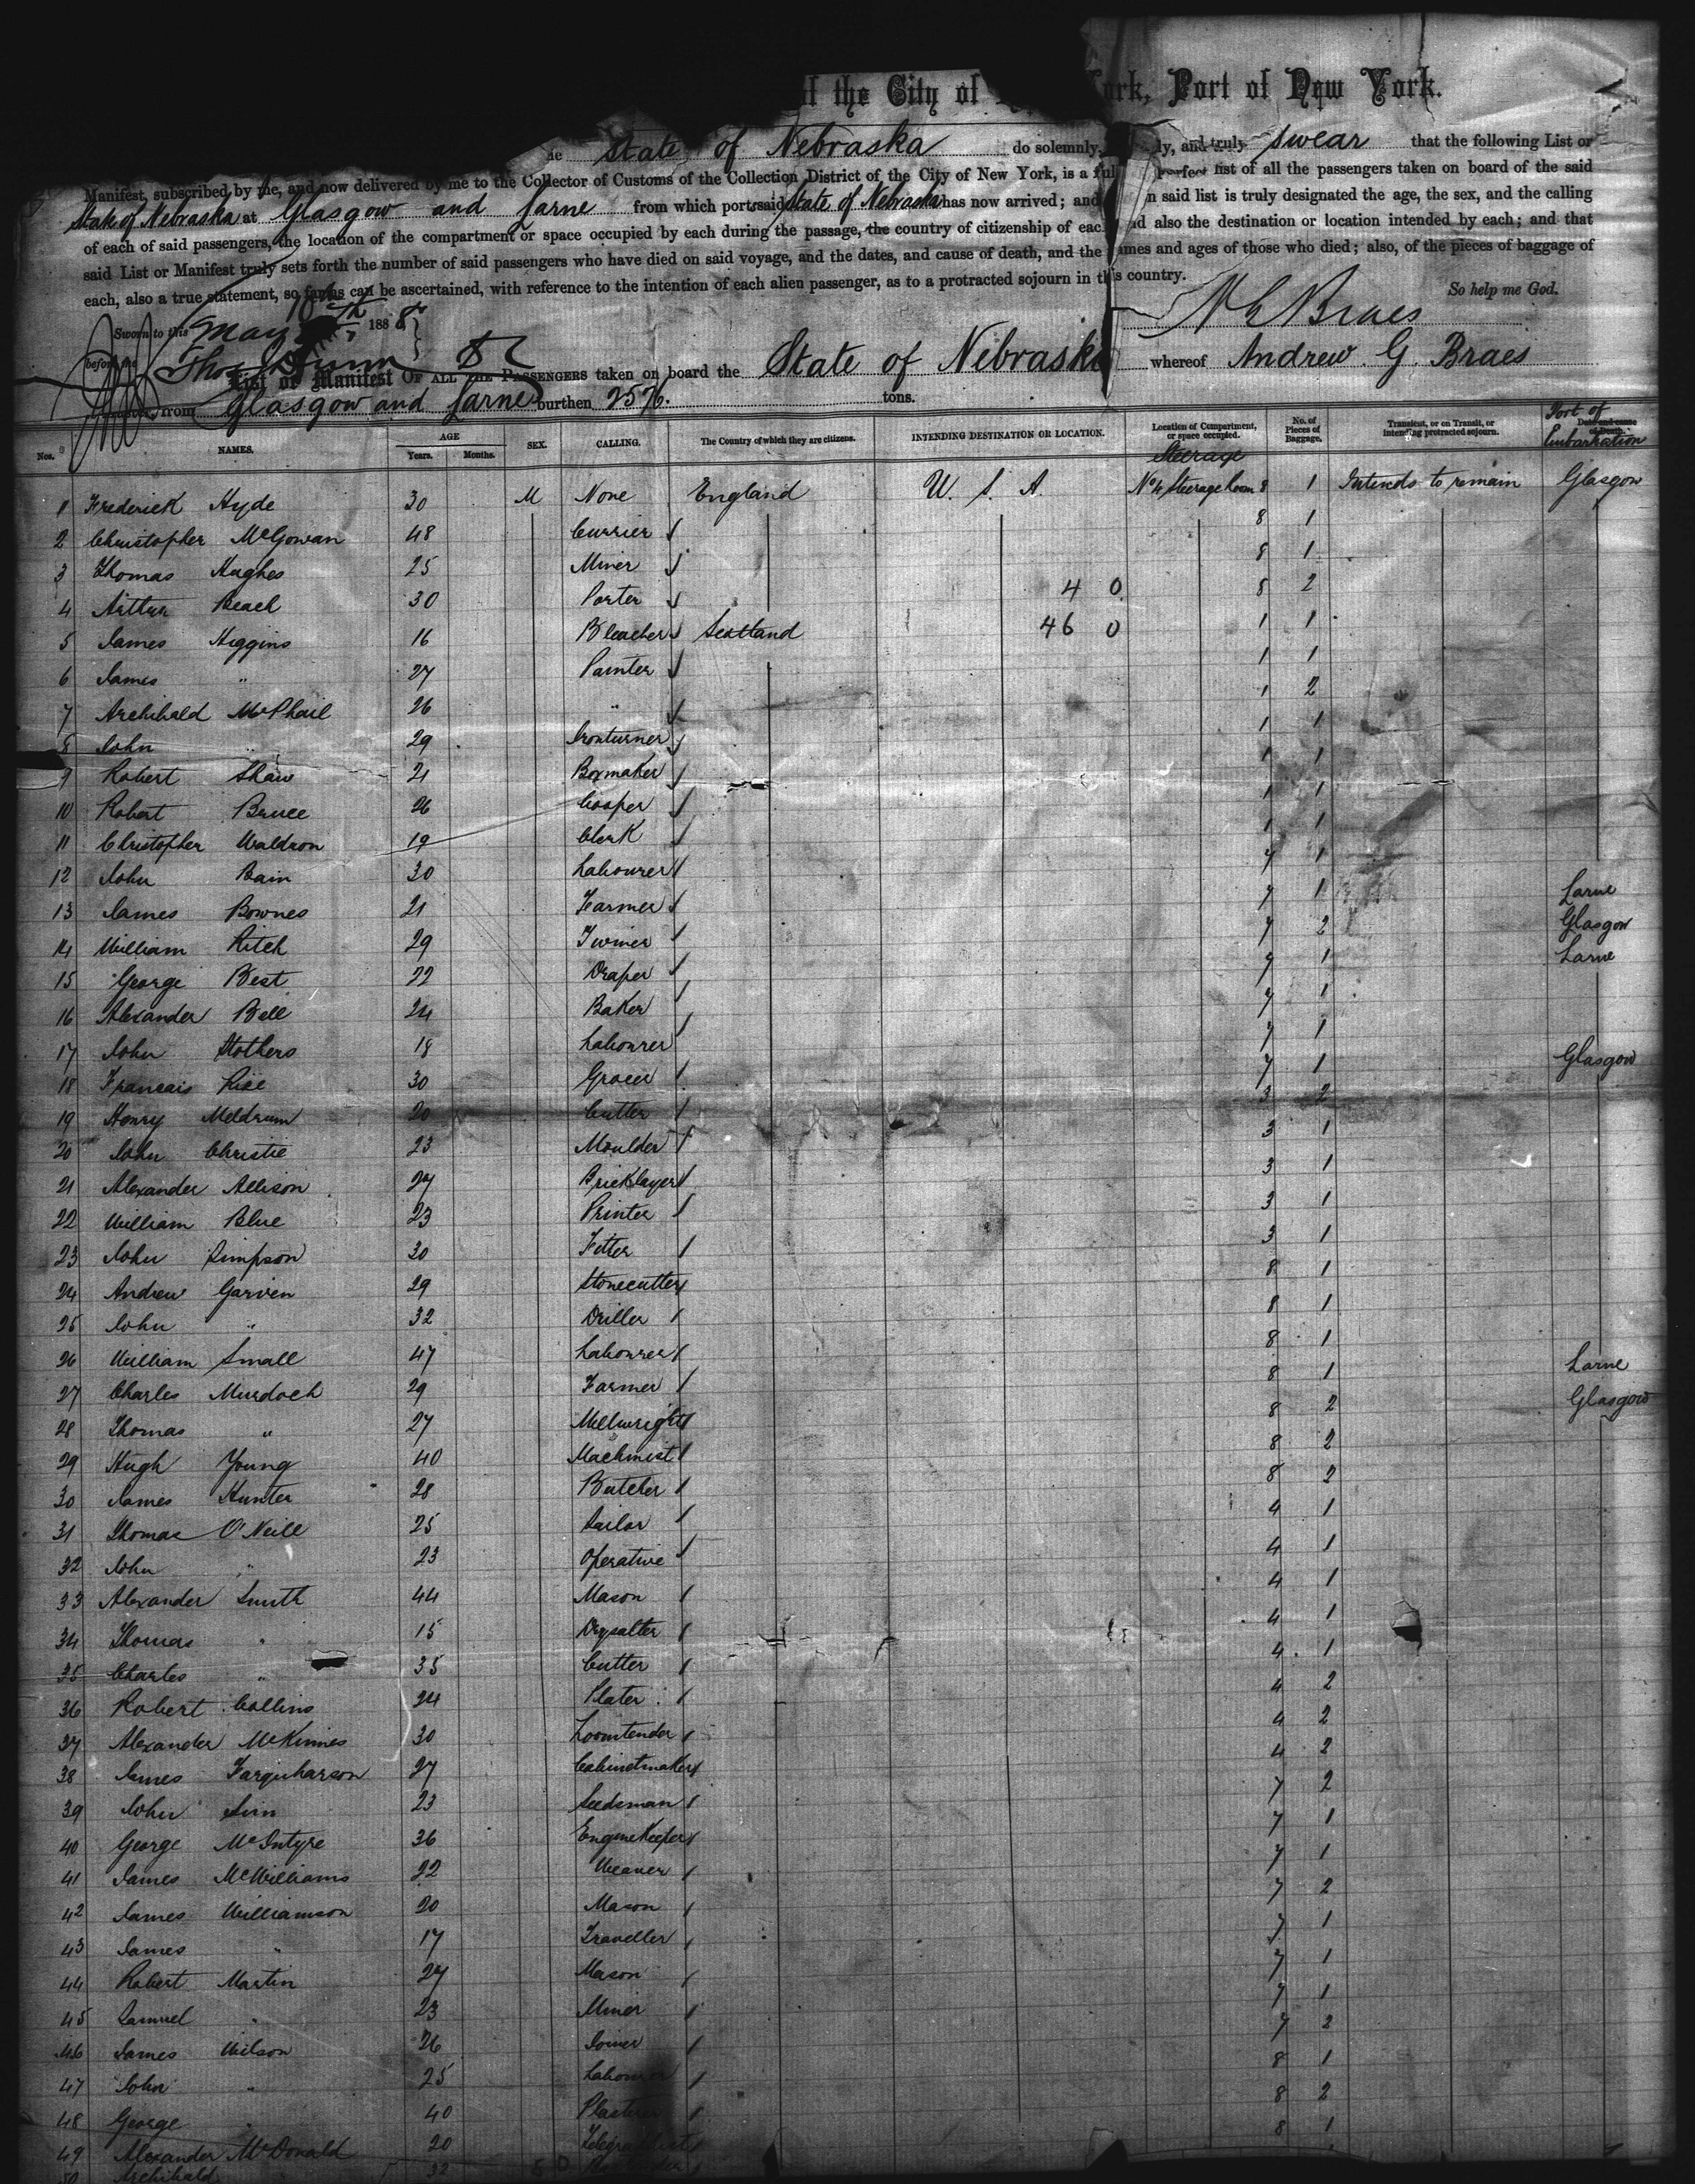 of the City of ork, Port of New York.
State of Nebraska do solemnly, ly, and truly swear that the following List or
Manifest, subscribed by me, and now delivered by me to the Collector of Customs of the Collection District of the City of New York, is a ful perfect list of all the passengers taken on board of the said
State of Nebraska at Glasgow and Larne from which port said State of Nebraska has now arrived; and n said list is truly designated the age, the sex, and the calling
of each of said passengers, the location of the compartment or space occupied by each during the passage, the country of citizenship of eac nd also the destination or location intended by each; and that
said List or Manifest truly sets forth the number of said passengers who have died on said voyage, and the dates, and cause of death, and the names and ages of those who died; also, of the pieces of baggage of
each, also a true statement, so far as can be ascertained, with reference to the intention of each alien passenger, as to a protracted sojourn in this country.
So help me God.
Sworn to this May 10th 1888
A G Braes
before me Thos J Dunn
List or Manifest OF ALL THE PASSENGERS taken on board the State of Nebraska whereof Andrew G. Braes
from Glasgow and Larne burthen 2576. tons.
Nos. NAMES. AGE Years. Months. SEX. CALLING. The Country of which they are citizens. INTENDING DESTINATION OR LOCATION. Location of Compartment, or space occupied. No. of Pieces of Baggage. Transient, or on Transit, or intending protracted sojourn. Date and cause of Death. Port of Embarkation
Steerage
1 Frederick Hyde 30 M None England U. S. A. No 4 Steerage Room 8 1 Intends to remain Glasgow
2 Christopher McGowan 48 Currier 8 1
3 Thomas Hughes 25 Miner 8 1
4 Arthur Beach 30 Porter 4 0 8 2
5 James Higgins 16 Bleacher Scotland 46 0 1 1
6 James " 27 Painter 1 1
7 Archibald McPhail 26 " 1 2
8 John " 29 Ironturner 1 1
9 Robert Shaw 21 Boxmaker 1 1
10 Robert Bruce 26 Cooper 1 1
11 Christopher Waldron 19 Clerk 1 1
12 John Bain 30 Labourer 7 1
13 James Bownes 21 Farmer 7 1 Larne
14 William Ritch 29 Turner 7 2 Glasgow
15 George Best 22 Draper 7 1 Larne
16 Alexander Bell 24 Baker 7 1
17 John Stothers 18 Labourer 7 1
18 Francais Rice 30 Grocer 7 1 Glasgow
19 Henry Meldrum 20 Cutter 3 2
20 John Christie 23 Moulder 3 1
21 Alexander Allison 27 Bricklayer 3 1
22 William Blue 23 Printer 3 1
23 John Simpson 30 Fitter 3 1
24 Andrew Garven 29 Stonecutter 8 1
25 John " 32 Driller 8 1
26 William Small 47 Labourer 8 1
27 Charles Murdoch 29 Farmer 8 1 Larne
28 Thomas " 27 Millwright 8 2 Glasgow
29 Hugh Young 40 Machinist 8 2
30 James Hunter 28 Butcher 8 2
31 Thomas O'Neill 25 Sailor 4 1
32 John " 23 Operative 4 1
33 Alexander Smith 44 Mason 4 1
34 Thomas " 15 Drysalter 4 1
35 Charles " 35 Cutter 4 1
36 Robert Collins 24 Plater 4 2
37 Alexander McKinnes 30 Loomtender 4 2
38 James Farquharson 27 Cabinetmaker 4 2
39 John Sim 23 Seedsman 7 2
40 George McIntyre 36 EngineKeeper 7 1
41 James McWilliams 22 Weaver 7 1
42 James Williamson 20 Mason 7 2
43 James " 17 Traveller 7 1
44 Robert Martin 27 Mason 7 1
45 Samuel " 23 Miner 7 1
46 James Wilson 26 Joiner 7 2
47 John " 25 Labourer 8 1
48 George " 40 Plasterer 8 2
49 Alexander McDonald 20 Telegraphist 8 1
50 Archibald 32